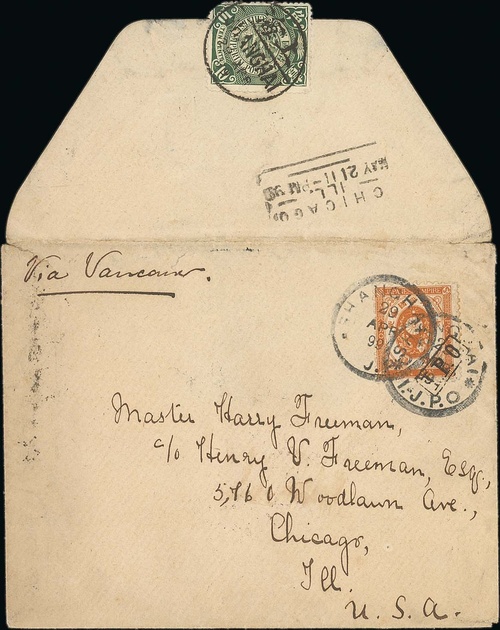 SHANGHAI
CHICAGO
ILL.
MAY 21 11-PM 99
Via Vancouver.
SHANGHAI
29
APR
99
I.J.P.O
Master Harry Freeman,
c/o Henry V. Freeman, Esq.,
5760 Woodlawn Ave.,
Chicago,
Ill.
U. S. A.